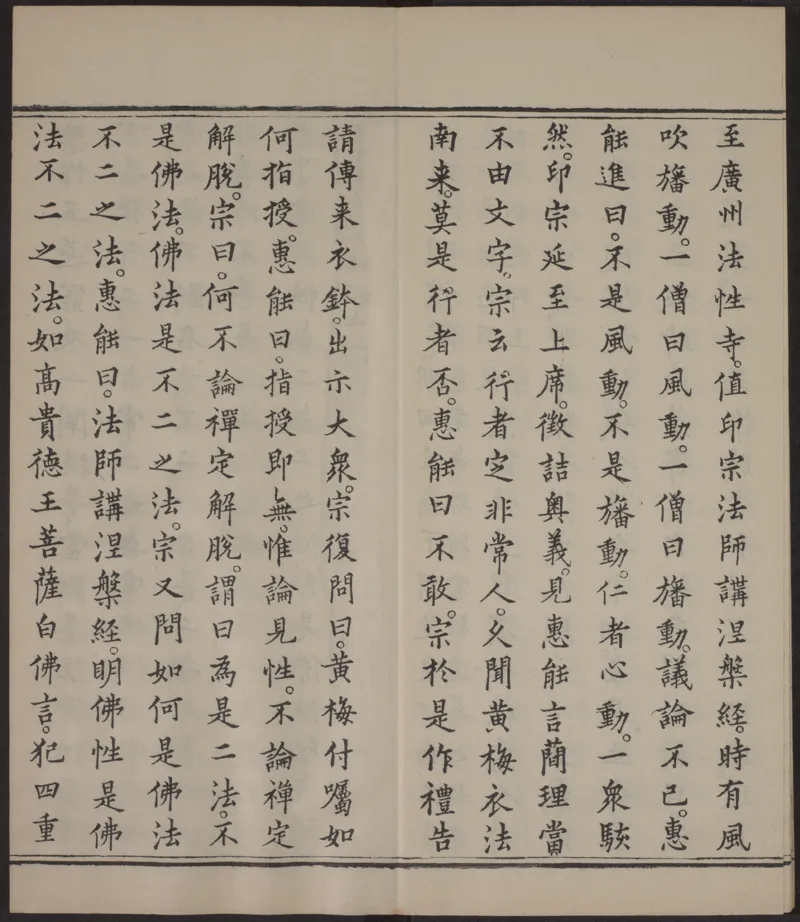 至廣州法性寺。值印宗法師講涅槃經。時有風
吹旛動。一僧曰風動。一僧曰旛動。議論不已。惠
能進曰。不是風動。不是旛動。仁者心動。一衆駭
然。印宗延至上席。徵詰奧義。見惠能言簡理當
不由文字。宗云。行者定非常人。久聞黃梅衣法
南来。莫是行者否。惠能曰不敢。宗於是作禮告
請傳来衣鉢。出示大衆。宗復問曰。黃梅付囑如
何指授。惠能曰。指授即無。惟論見性。不論禪定
解脫。宗曰。何不論禪定解脫。謂曰為是二法。不
是佛法。佛法是不二之法。宗又問如何是佛法
不二之法。惠能曰。法師講涅槃經。明佛性是佛
法不二之法。如高貴德王菩薩白佛言。犯四重